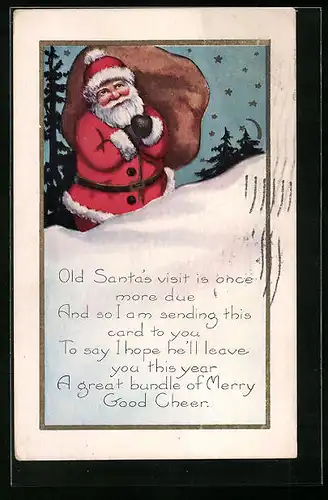 Old Santa's visit is once
more due
And so I am sending this
card to you
To say I hope he'll leave
you this year
A great bundle of Merry
Good Cheer.